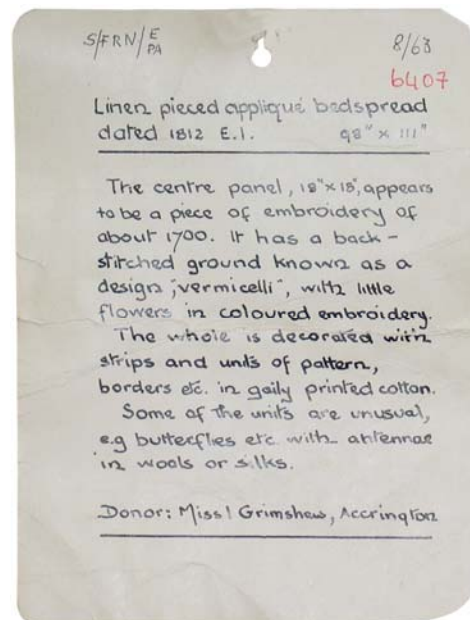 S/FRN/E
PA
8/63
6407
Linen pieced appliqué bedspread
dated 1812 E.I. 98" x 111"
The centre panel, 18" x 18", appears
to be a piece of embroidery of
about 1700. It has a back-
stitched ground known as a
design, "vermicelli", with little
flowers in coloured embroidery.
The whole is decorated with
strips and units of pattern,
borders etc. in gaily printed cotton.
Some of the units are unusual,
e.g butterflies etc with antennae
in wools or silks.
Donor: Miss I Grimshaw, Accrington